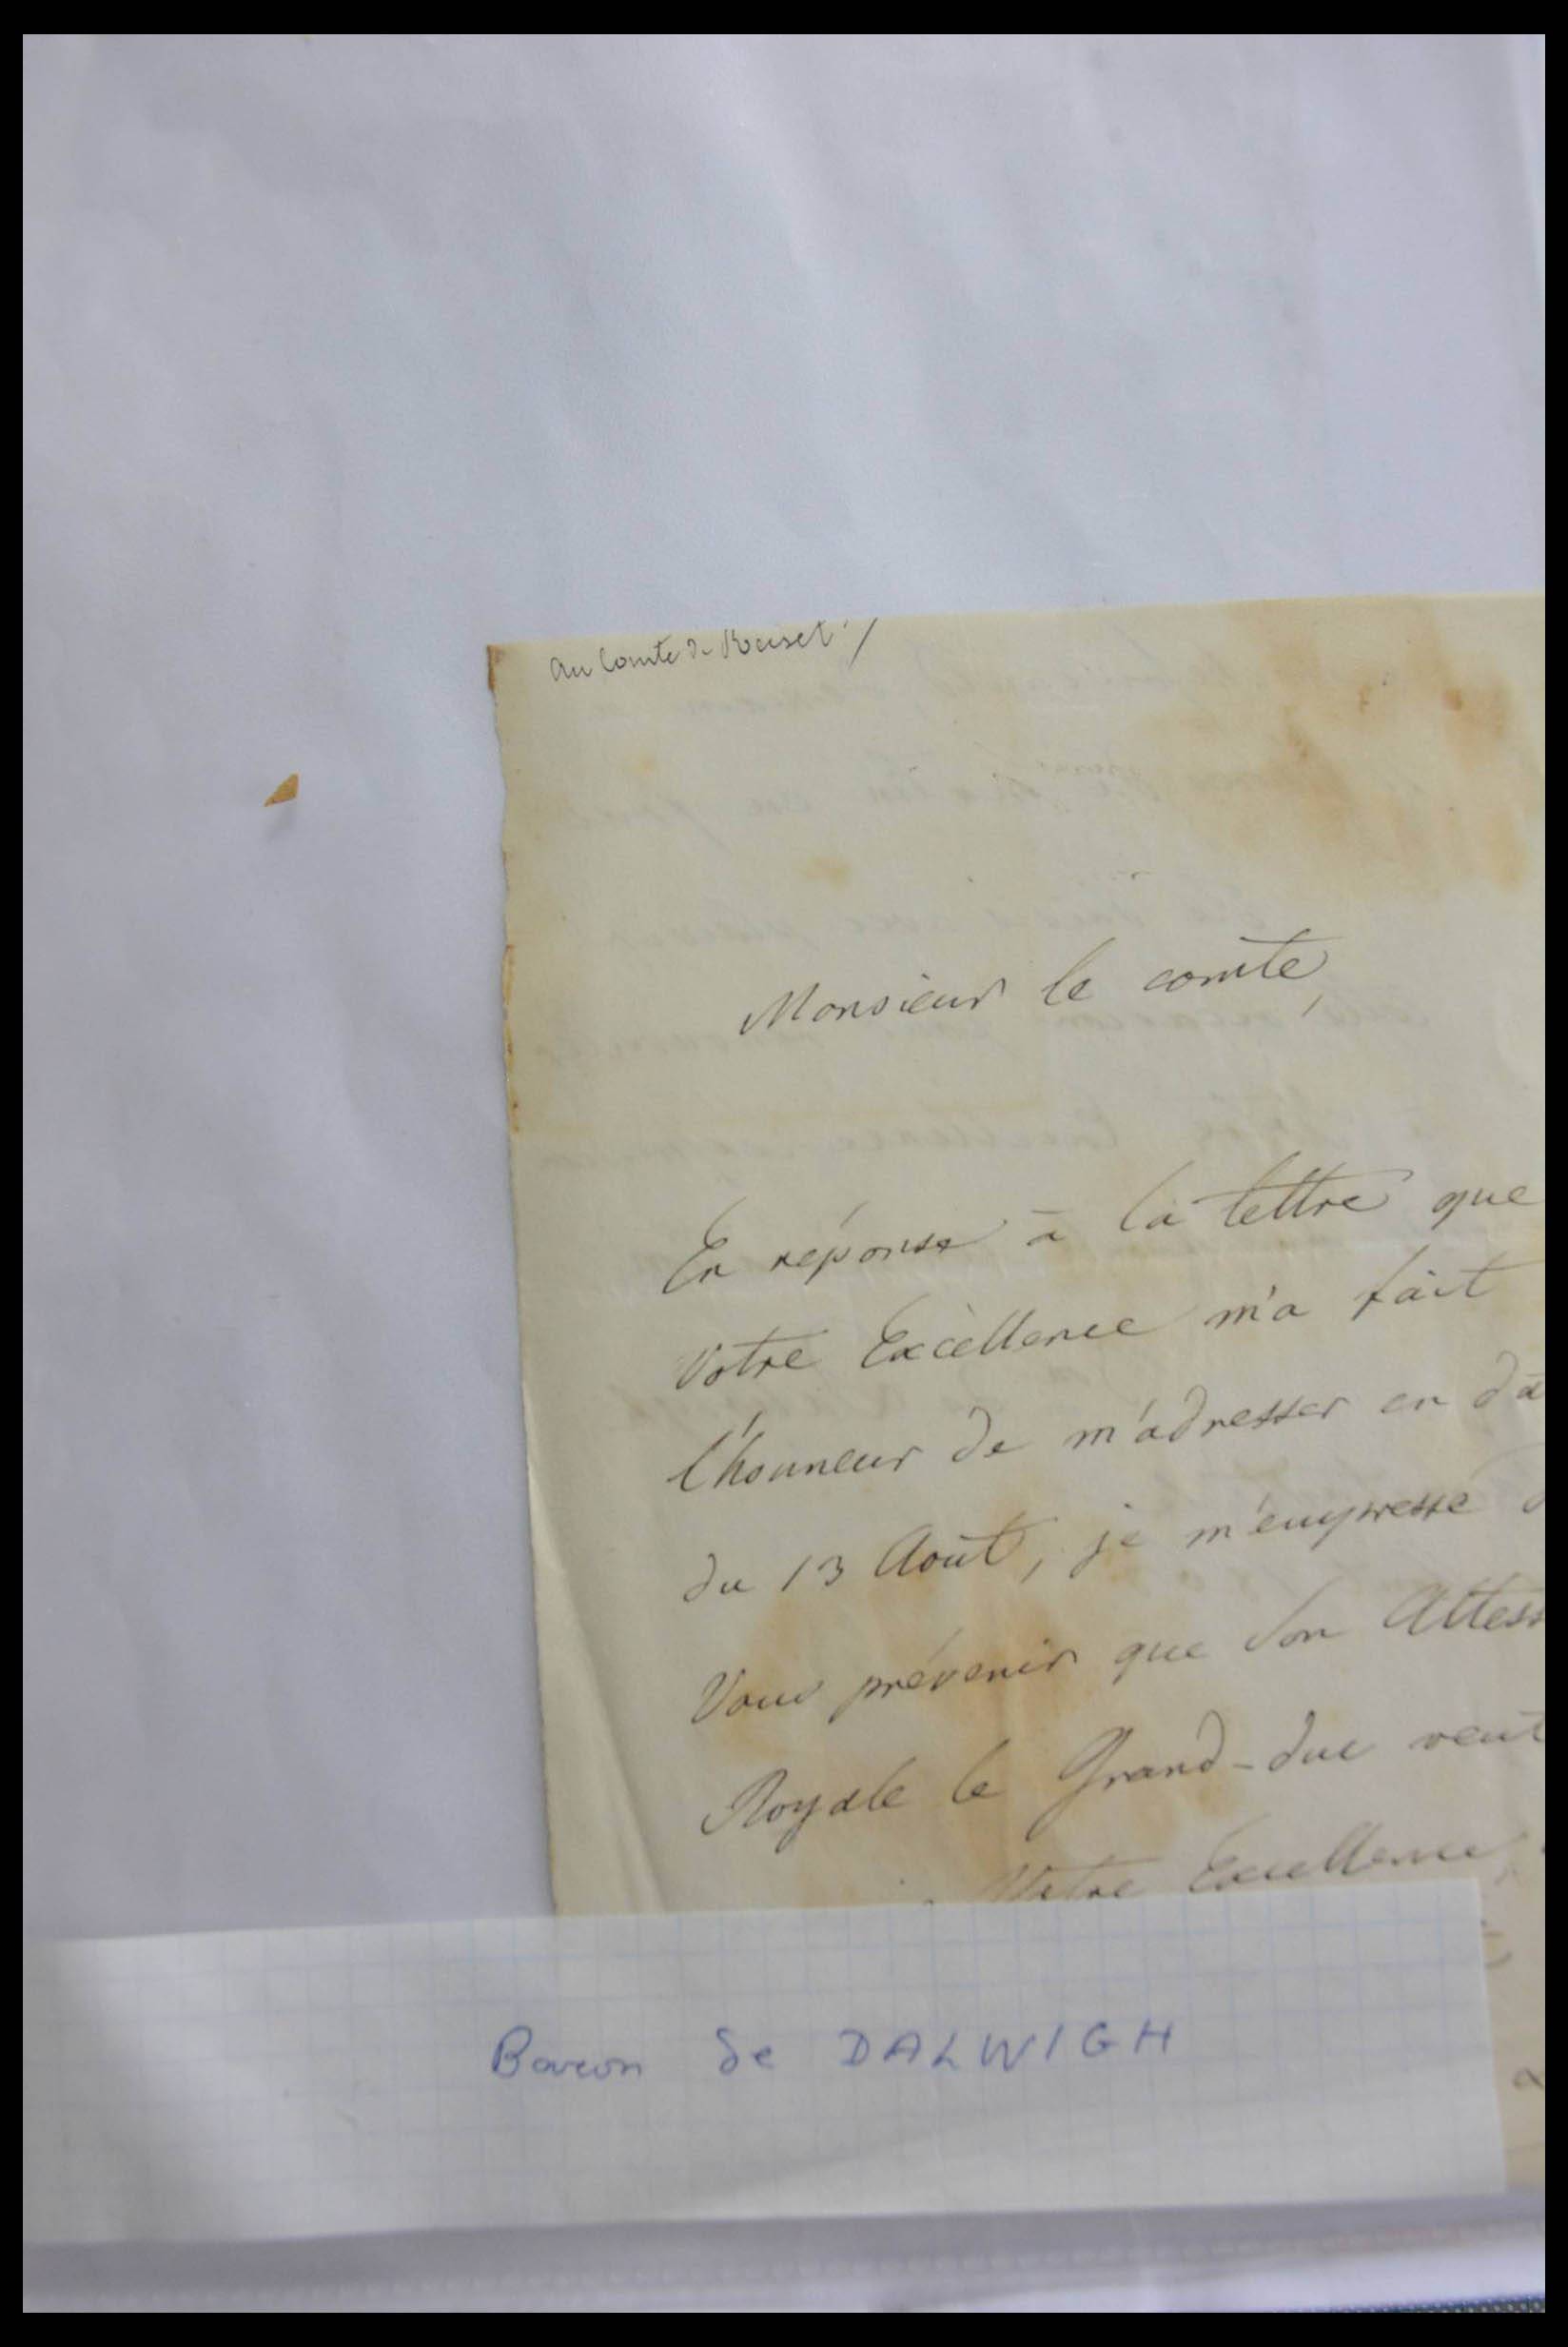 au Comte de Reiset
Monsieur le comte,
En réponse à la lettre que
Votre Excellence m'a fait
l'honneur de m'adresser en da
du 13 Août, je m'empresse d
Vous prévenir que Son Altess
Royale le Grand-duc veut
Votre Excellence
Baron de DALWIGH